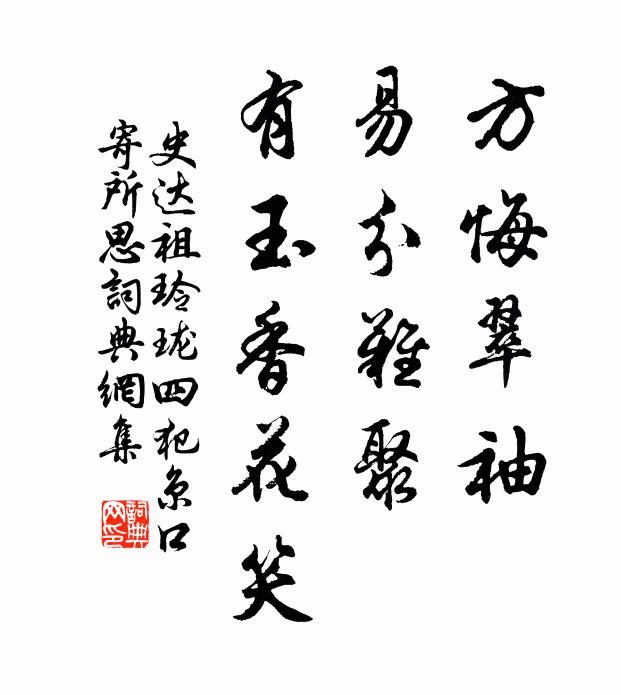 方悔翠袖
易分難聚
有玉香花笑
史达祖玲珑四犯京口
寄所思詞典網集
詞典
网印